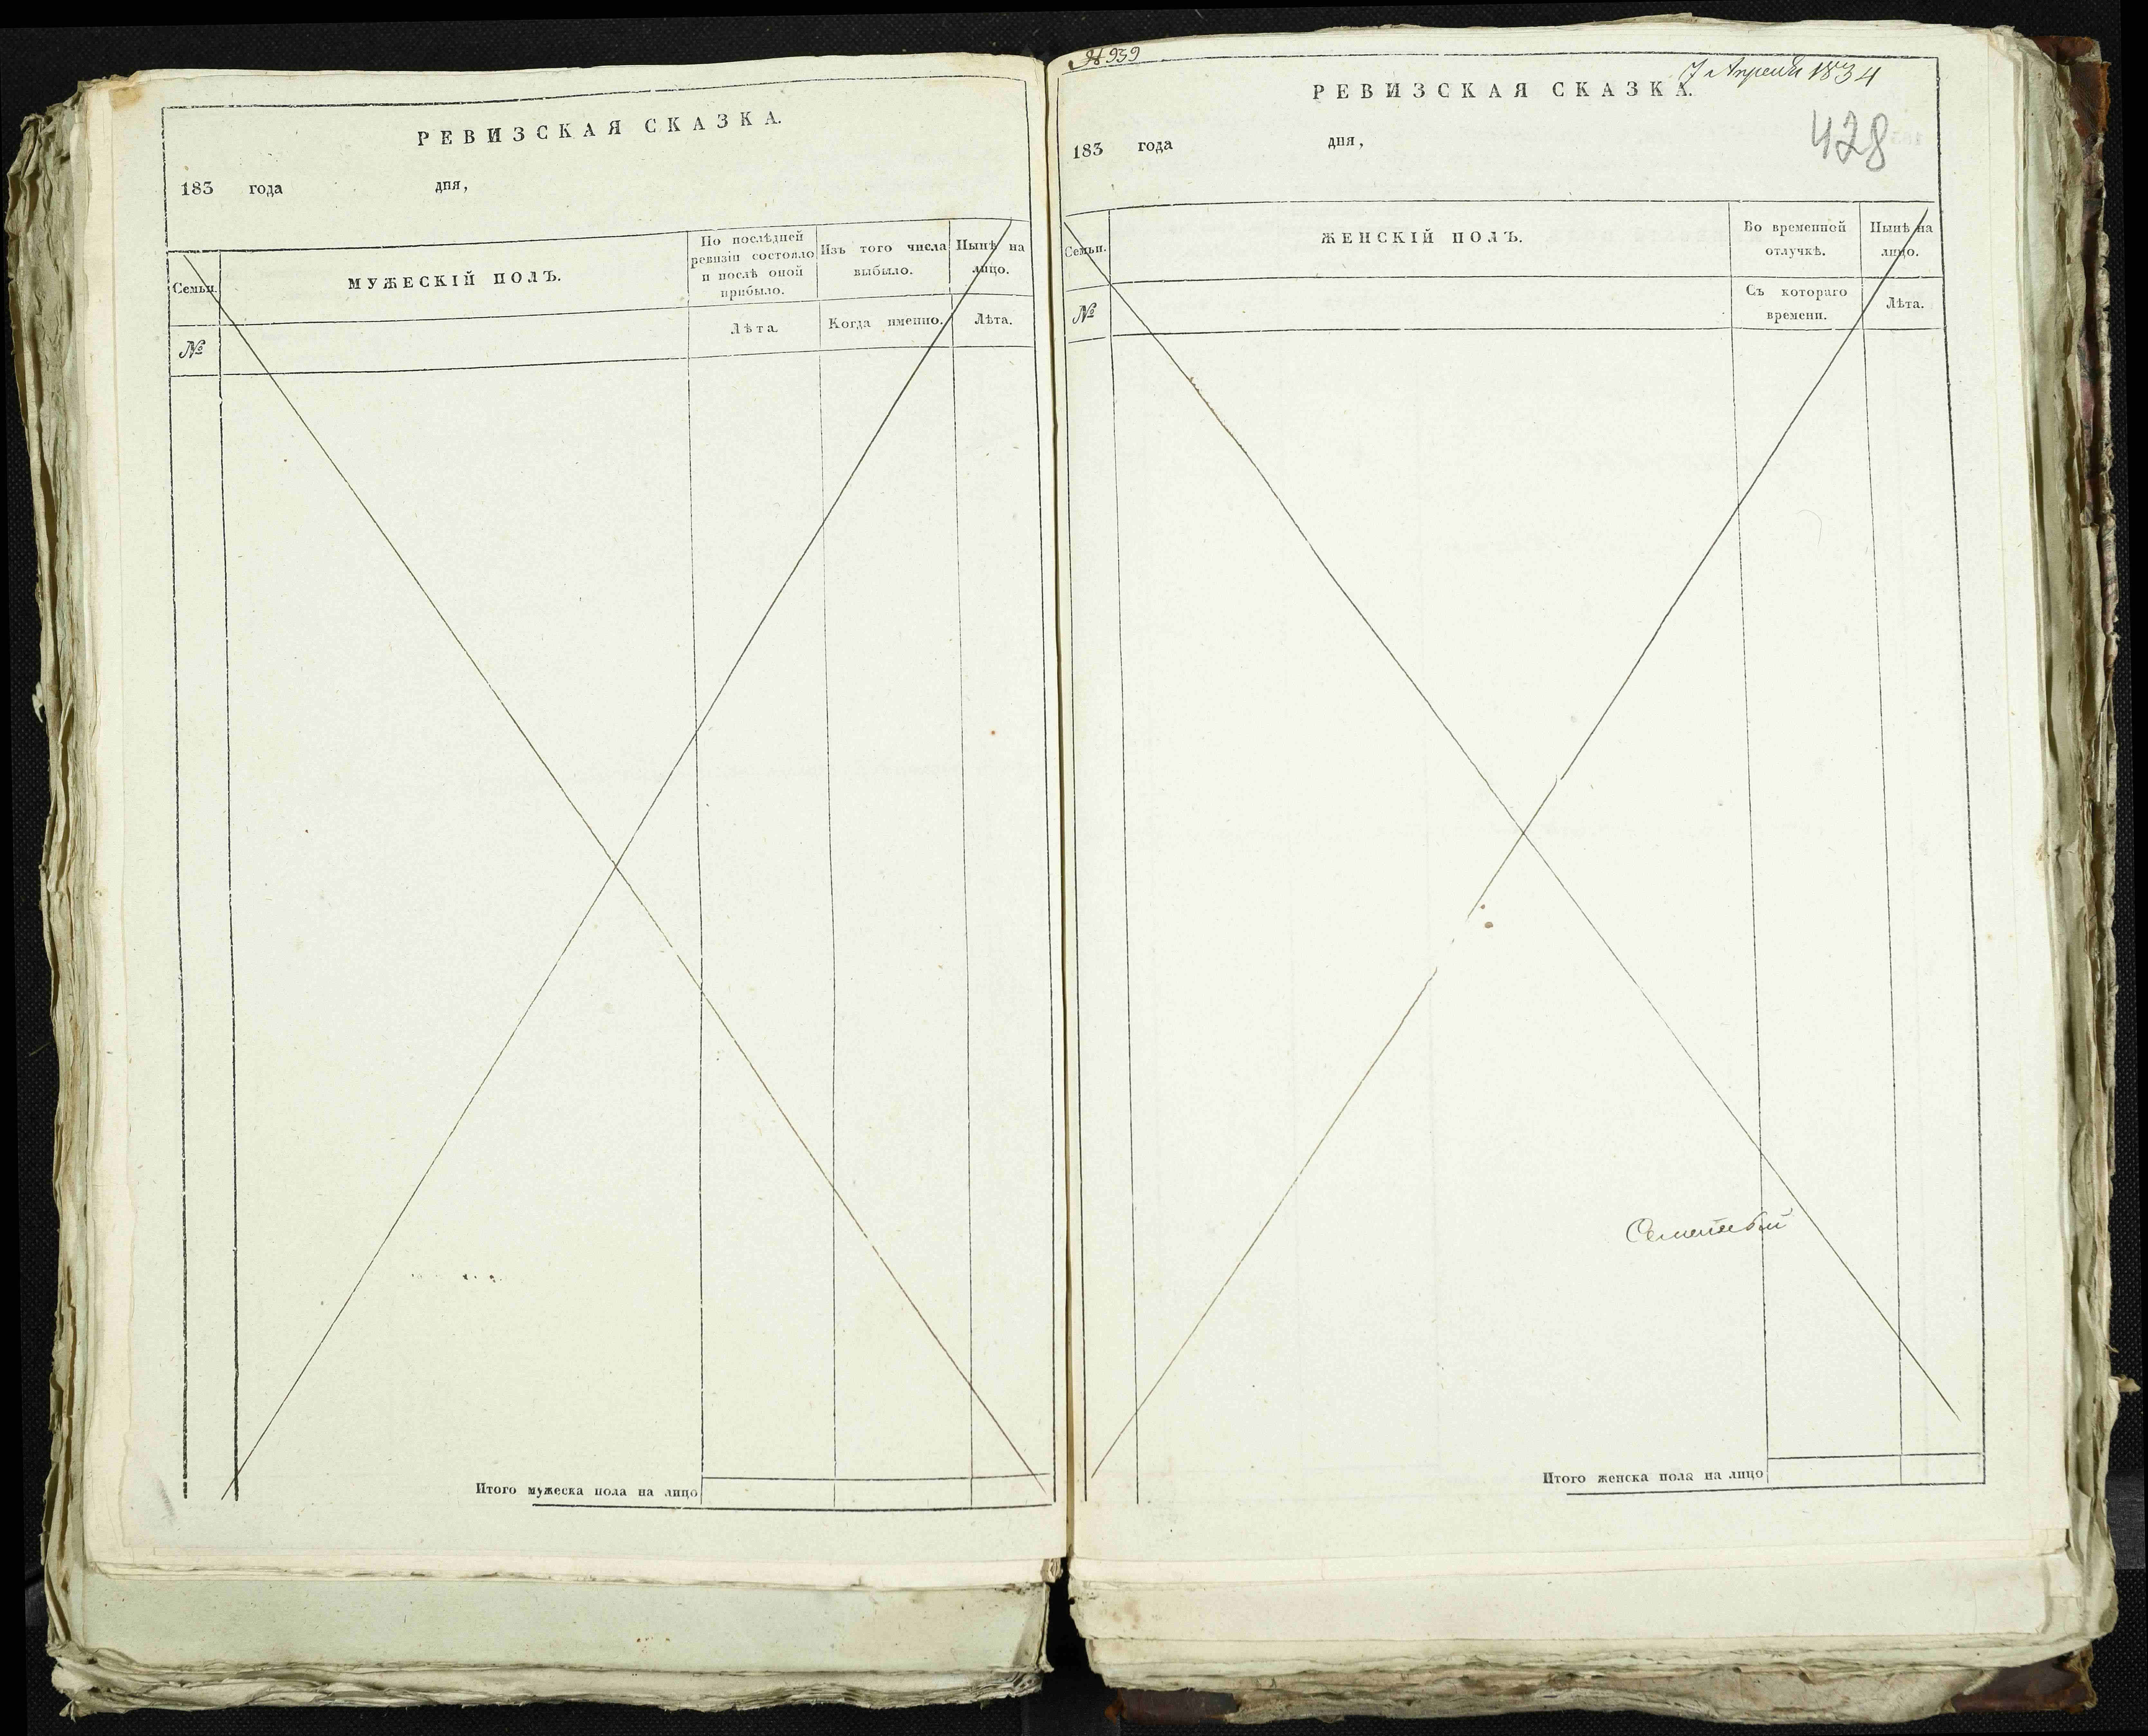 РЕВИЗСКАЯ СКАЗКА.
183 года дня,
Семьи.
МУЖЕСКІЙ ПОЛЪ.
По послѣдней
ревизіи состояло
и послѣ оной
прибыло.
Изъ того числа
выбыло.
Нынѣ на
лицо.
№
Лѣта.
Когда именно.
Лѣта.
Итого мужеска пола на лицо
№ 939
7 Апреля 1834
РЕВИЗСКАЯ СКАЗКА.
428
183 года дня,
Семьи.
ЖЕНСКІЙ ПОЛЪ.
Во временной
отлучкѣ.
Нынѣ на
лицо.
№
Съ котораго
времени.
Лѣта.
Итого женска пола на лицо